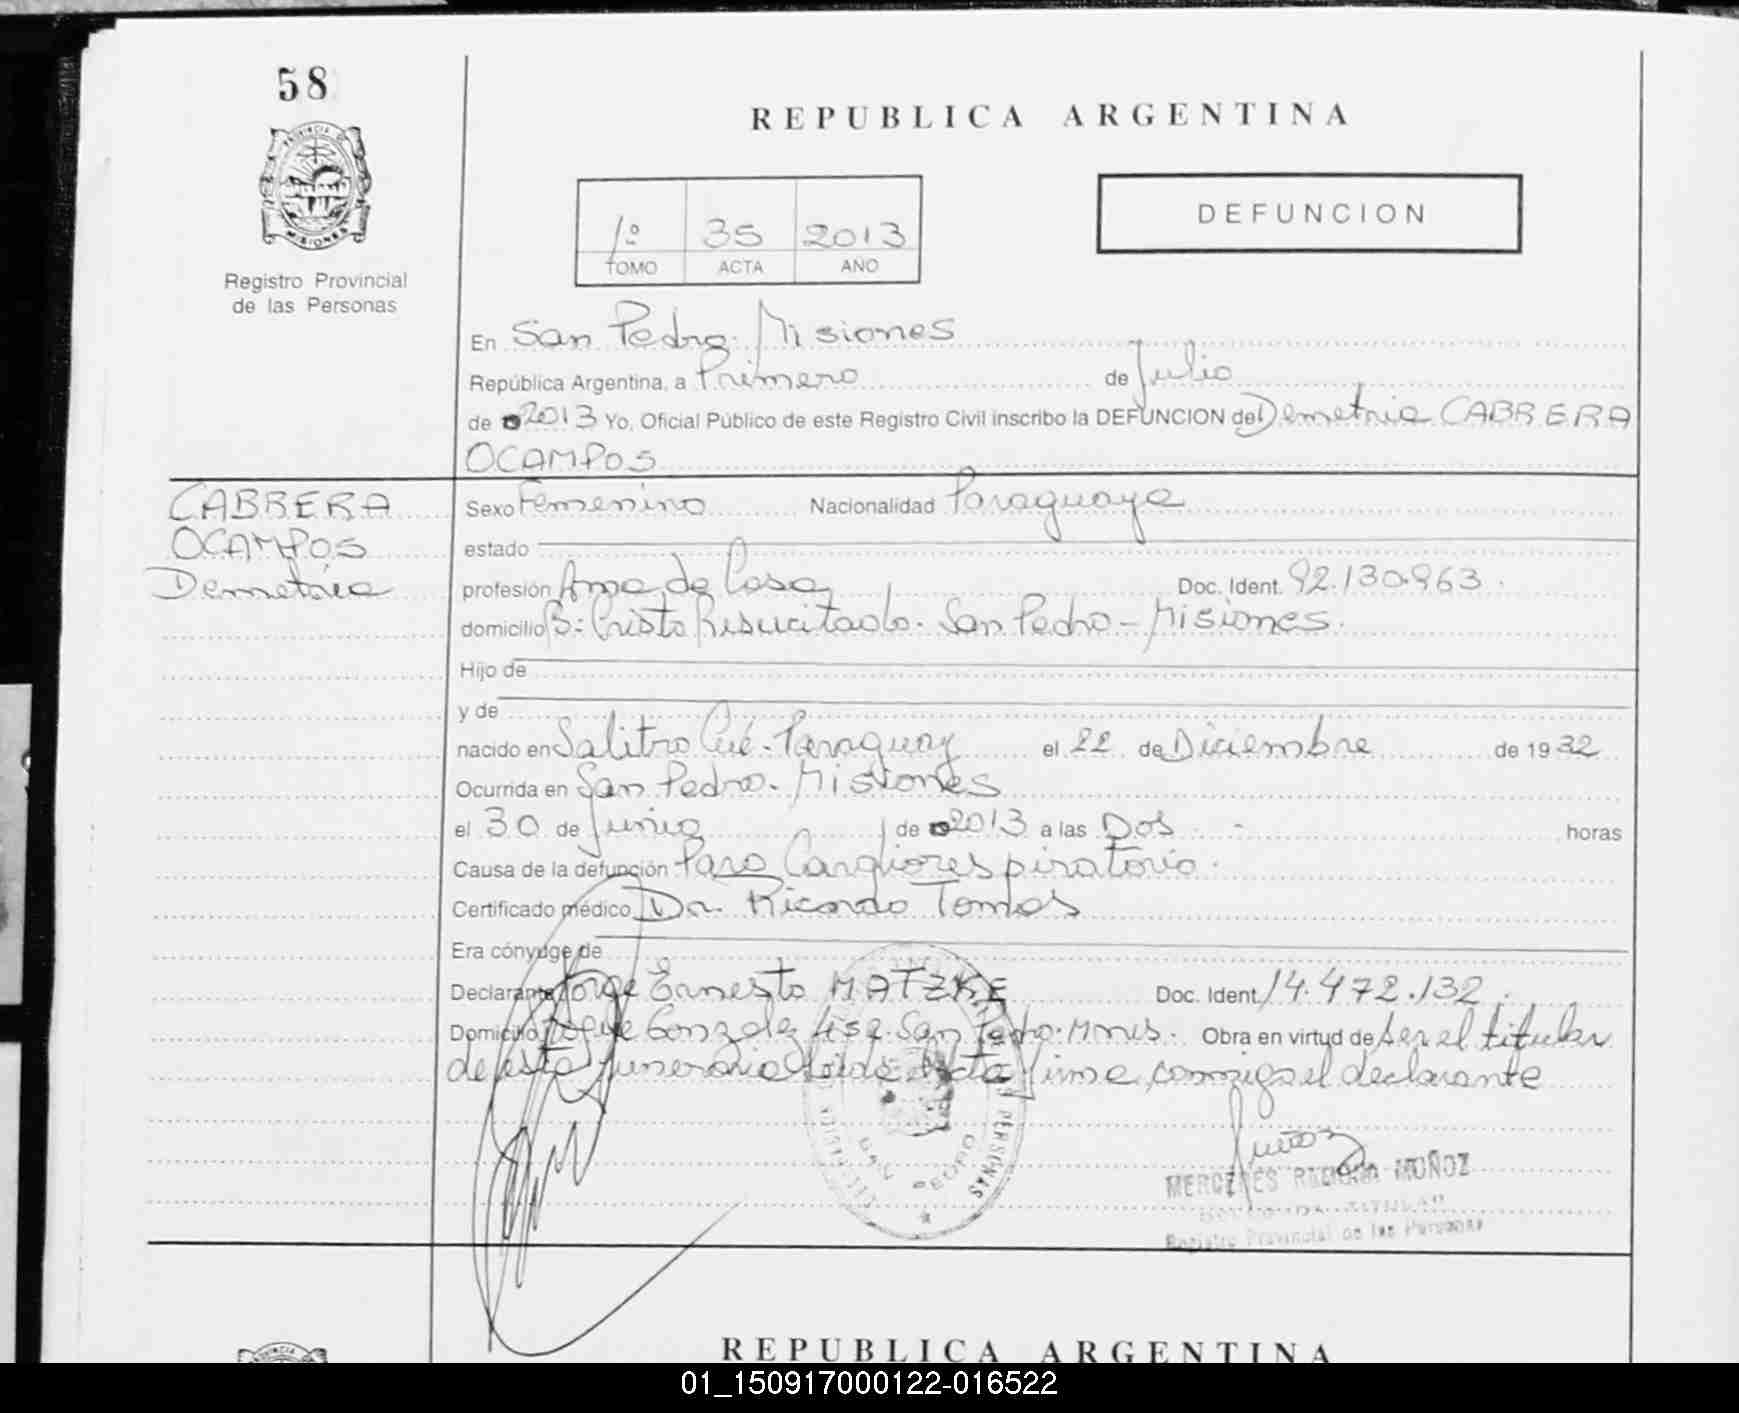 58
PROVINCIA DE
MISIONES
Registro Provincial
de las Personas
REPUBLICA ARGENTINA
1º 35 2013
TOMO ACTA AÑO
DEFUNCION
En San Pedro. Misiones
República Argentina, a Primero de Julio
de 2013 Yo, Oficial Público de este Registro Civil inscribo la DEFUNCION de Demetria CABRERA
OCAMPOS
CABRERA
OCAMPOS
Demetria
Sexo Femenino Nacionalidad Paraguaya
estado
profesión Ama de Casa Doc. Ident. 92.130.963.
domicilio B: Cristo Resucitado. San Pedro - Misiones.
Hijo de
y de
nacido en Salitro Cué. Paraguay el 22 de Diciembre de 1932
Ocurrida en San Pedro. Misiones
el 30 de Junio de 2013 a las Dos - horas
Causa de la defunción Paro Cardiorespiratorio.
Certificado médico Dr. Ricardo Tomas
Era cónyuge de
Declarante Jorge Ernesto MATZKE Doc. Ident. 14.472.132.
Domicilio Roque Gonzalez 452. San Pedro. Mnes. Obra en virtud de ser el titular
de esta funeraria Leída Acta firma conmigo el declarante
PERSONAS
PEDRO
MERCEDES RAMONA MUÑOZ
Registro Provincial de las Personas
REPUBLICA ARGENTINA
01_150917000122-016522